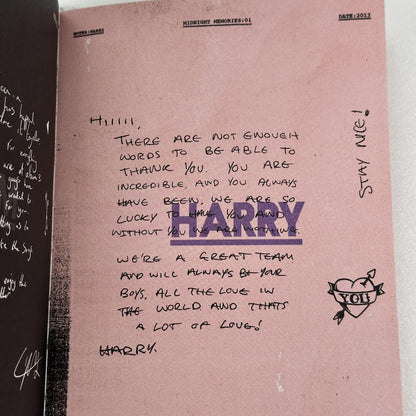 NOTES:HARRY
MIDNIGHT MEMORIES:01
DATE:2013
HIIIII,
THERE ARE NOT ENOUGH
WORDS TO BE ABLE TO
THANK YOU. YOU ARE
INCREDIBLE, AND YOU ALWAYS
HAVE BEEN. WE ARE SO
LUCKY TO HAVE YOU AND
WITHOUT YOU WE ARE NOTHING.
WE'RE A GREAT TEAM
AND WILL ALWAYS BE YOUR
BOYS. ALL THE LOVE IN
THE WORLD AND THATS
A LOT OF LOVE!
HARRY.
HARRY
STAY NICE!
YOU